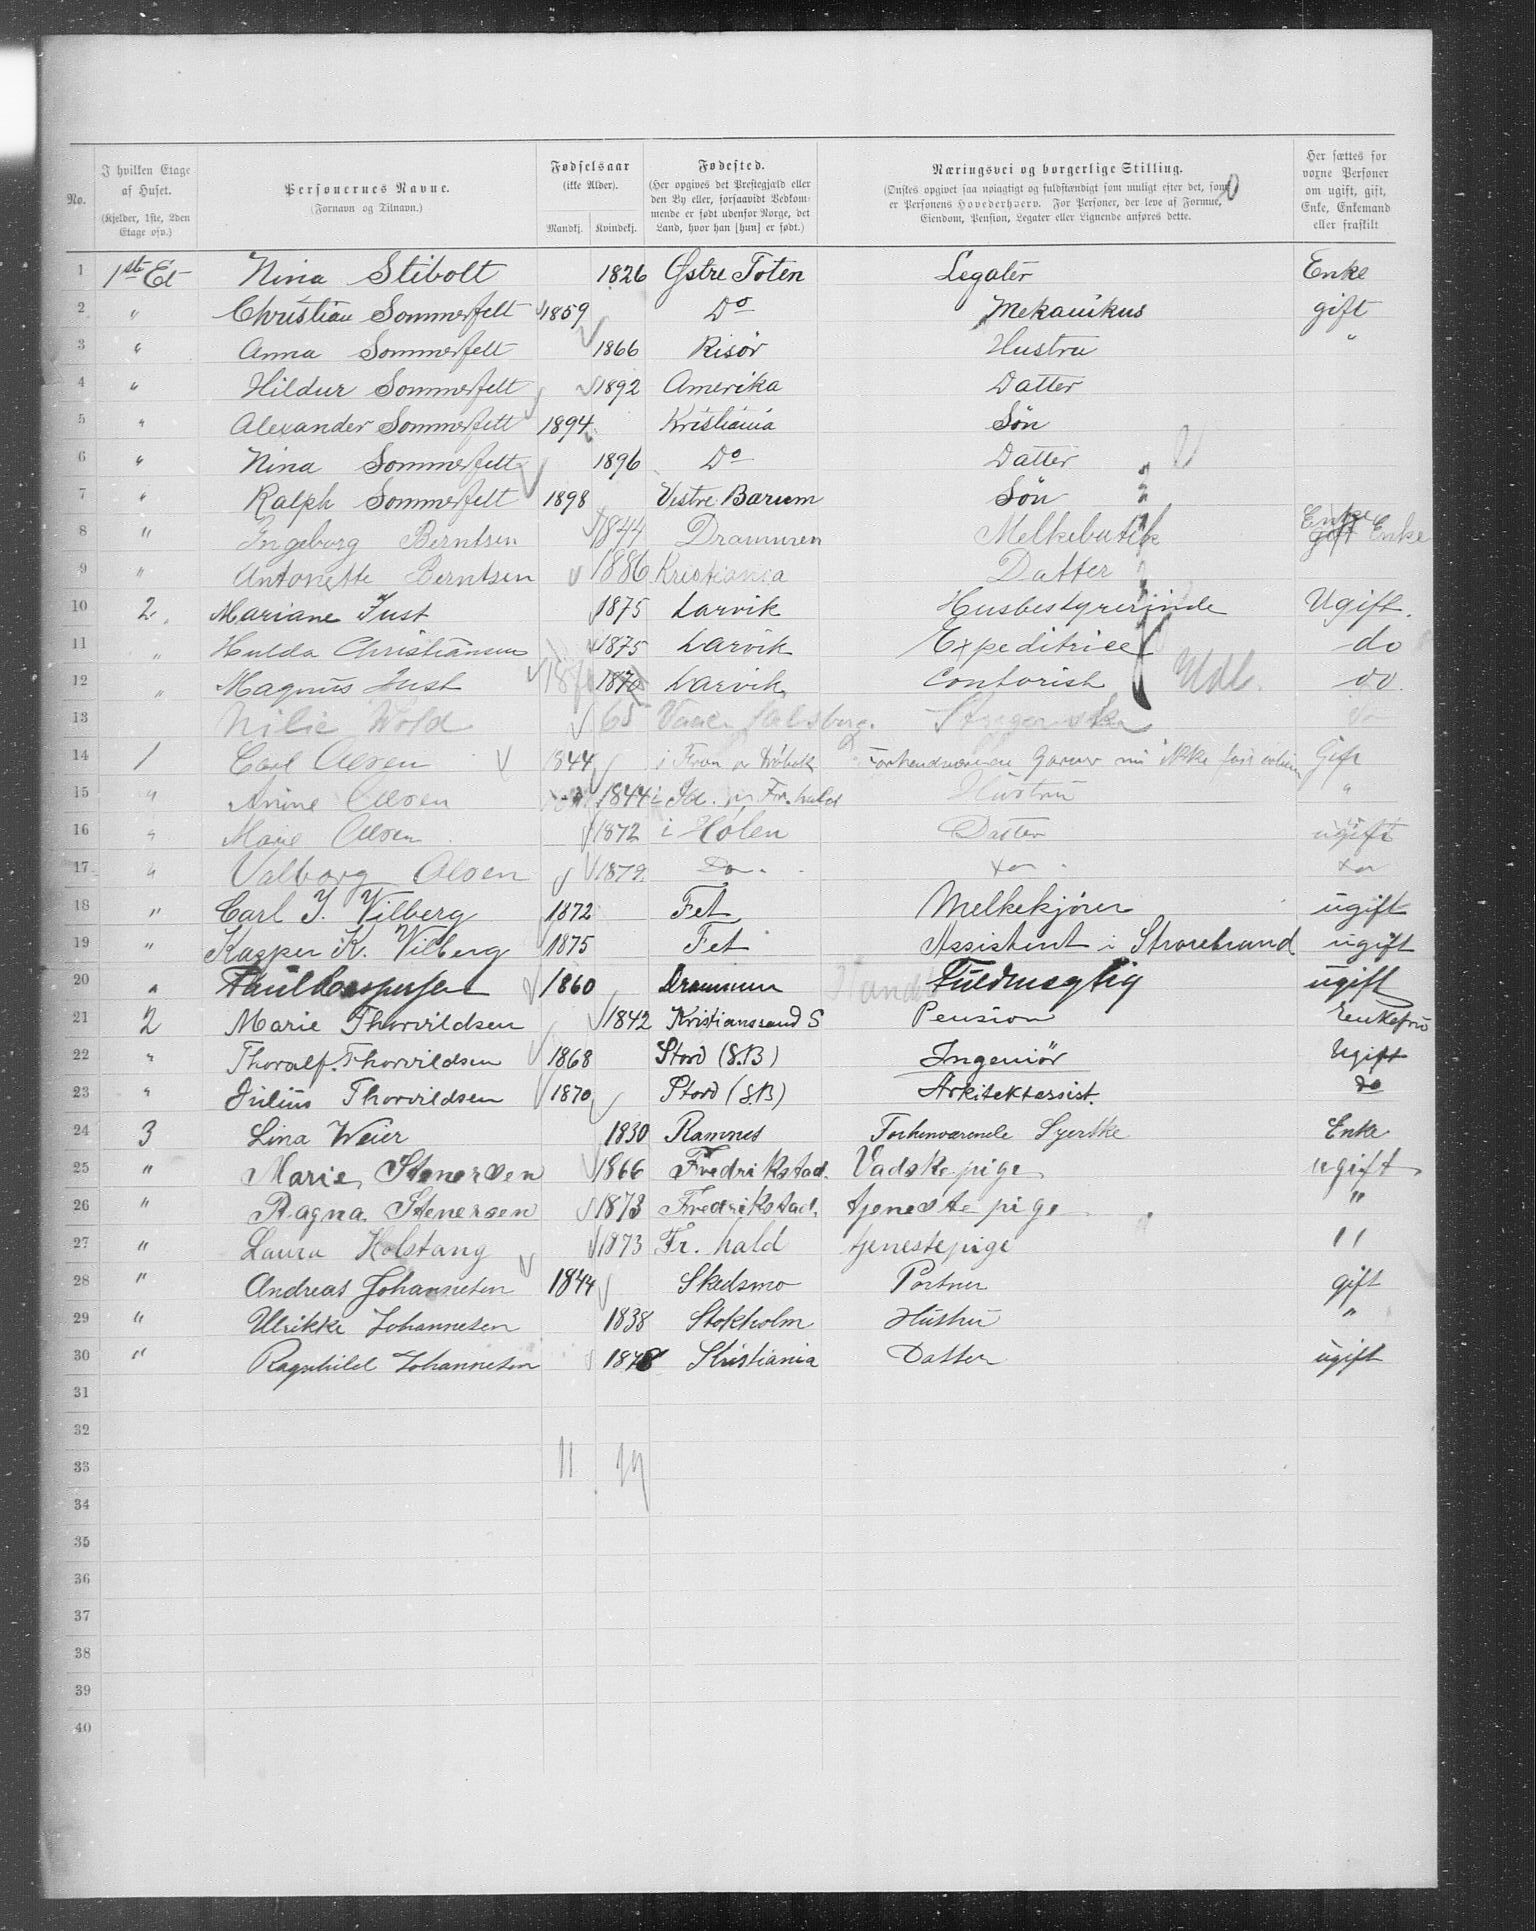 No.
I hvilken Etage af Huset. (Kjelder, 1ste, 2den Etage osv.)
Personernes Navne. (Fornavn og Tilnavn.)
Fødselsaar (ikke Alder). Mandkj. Kvindekj.
Fødested. (Her opgives det Prestegjæld eller den By eller, forsaavidt Vedkommende er født udenfor Norge, det Land, hvor han [hun] er født.)
Næringsvei og borgerlige Stilling. (Ønskes opgivet saa nøiagtigt og fuldstændigt som muligt efter det, som er Personens Hovederhverv. For Personer, der leve af Formue, Eiendom, Pension, Legater eller Lignende anføres dette.
Her sættes for voxne Personer om ugift, gift, Enke, Enkemand eller fraskilt
1 1ste Et Nina Stibolt 1826 Østre Toten Legater Enke
2 " Christian Sommerfelt 1859 Do Mekanikus gift
3 " Anna Sommerfelt 1866 Risør Hustru "
4 " Hildur Sommerfelt 1892 Amerika Datter
5 " Alexander Sommerfelt 1894 Kristiania Søn
6 " Nina Sommerfelt 1896 Do Datter
7 " Ralph Sommerfelt 1898 Vestre Bærum Søn
8 " Ingeborg Berntsen 1844 Drammen Melkebutik Enke gift Enke
9 " Antonette Berntsen 1886 Kristiania Datter
10 2. Mariane Just 1875 Larvik Husbestyrerinde Ugift.
11 " Hulda Christiansen 1875 Larvik Expeditrice do
12 " Magnus Just 1870 Larvik Contorist Udl. do.
13 Nilie Wold 65 Strygerske Do
14 1 Carl Olsen 1844 Gift
15 " Anine Olsen 1844 Hustru "
16 " Marie Olsen 1872 i Hølen Datter ugift
17 " Valborg Olsen 1879. Do. do do
18 " Carl J. Vilberg 1872 Fet Melkekjører ugift
19 " Kasper K. Vilberg 1875 Fet Assistent i Storebrand ugift
20 " Paul Caspersen 1860 Drammen Handels Fuldmægtig ugift
21 2 Marie Thorvildsen 1842 Kristianssand S Pension Enkefru
22 " Thoralf Thorvildsen 1868 Stord (S.B) Ingeniør Ugift
23 " Julius Thorvildsen 1870 Stord (S.B) Arkitektassist. do
24 3 Lina Weier 1830 Ramnes Forhenværende Syerske Enke
25 " Marie Stenersen 1866 Fredrikstad. Vadskepige ugift
26 " Ragna Stenersen 1873 Fredrikstad. tjenestepige "
27 " Laura Holstang 1873 Fr. hald tjenestepige "
28 " Andreas Johannesen 1844 Skedsmo Portner gift
29 " Ulrikke Johannesen 1838 Stokholm Hustru "
30 " Ragnhild Johannesen 1878 Kristiania Datter ugift
31
32
33 11 19
34
35
36
37
38
39
40